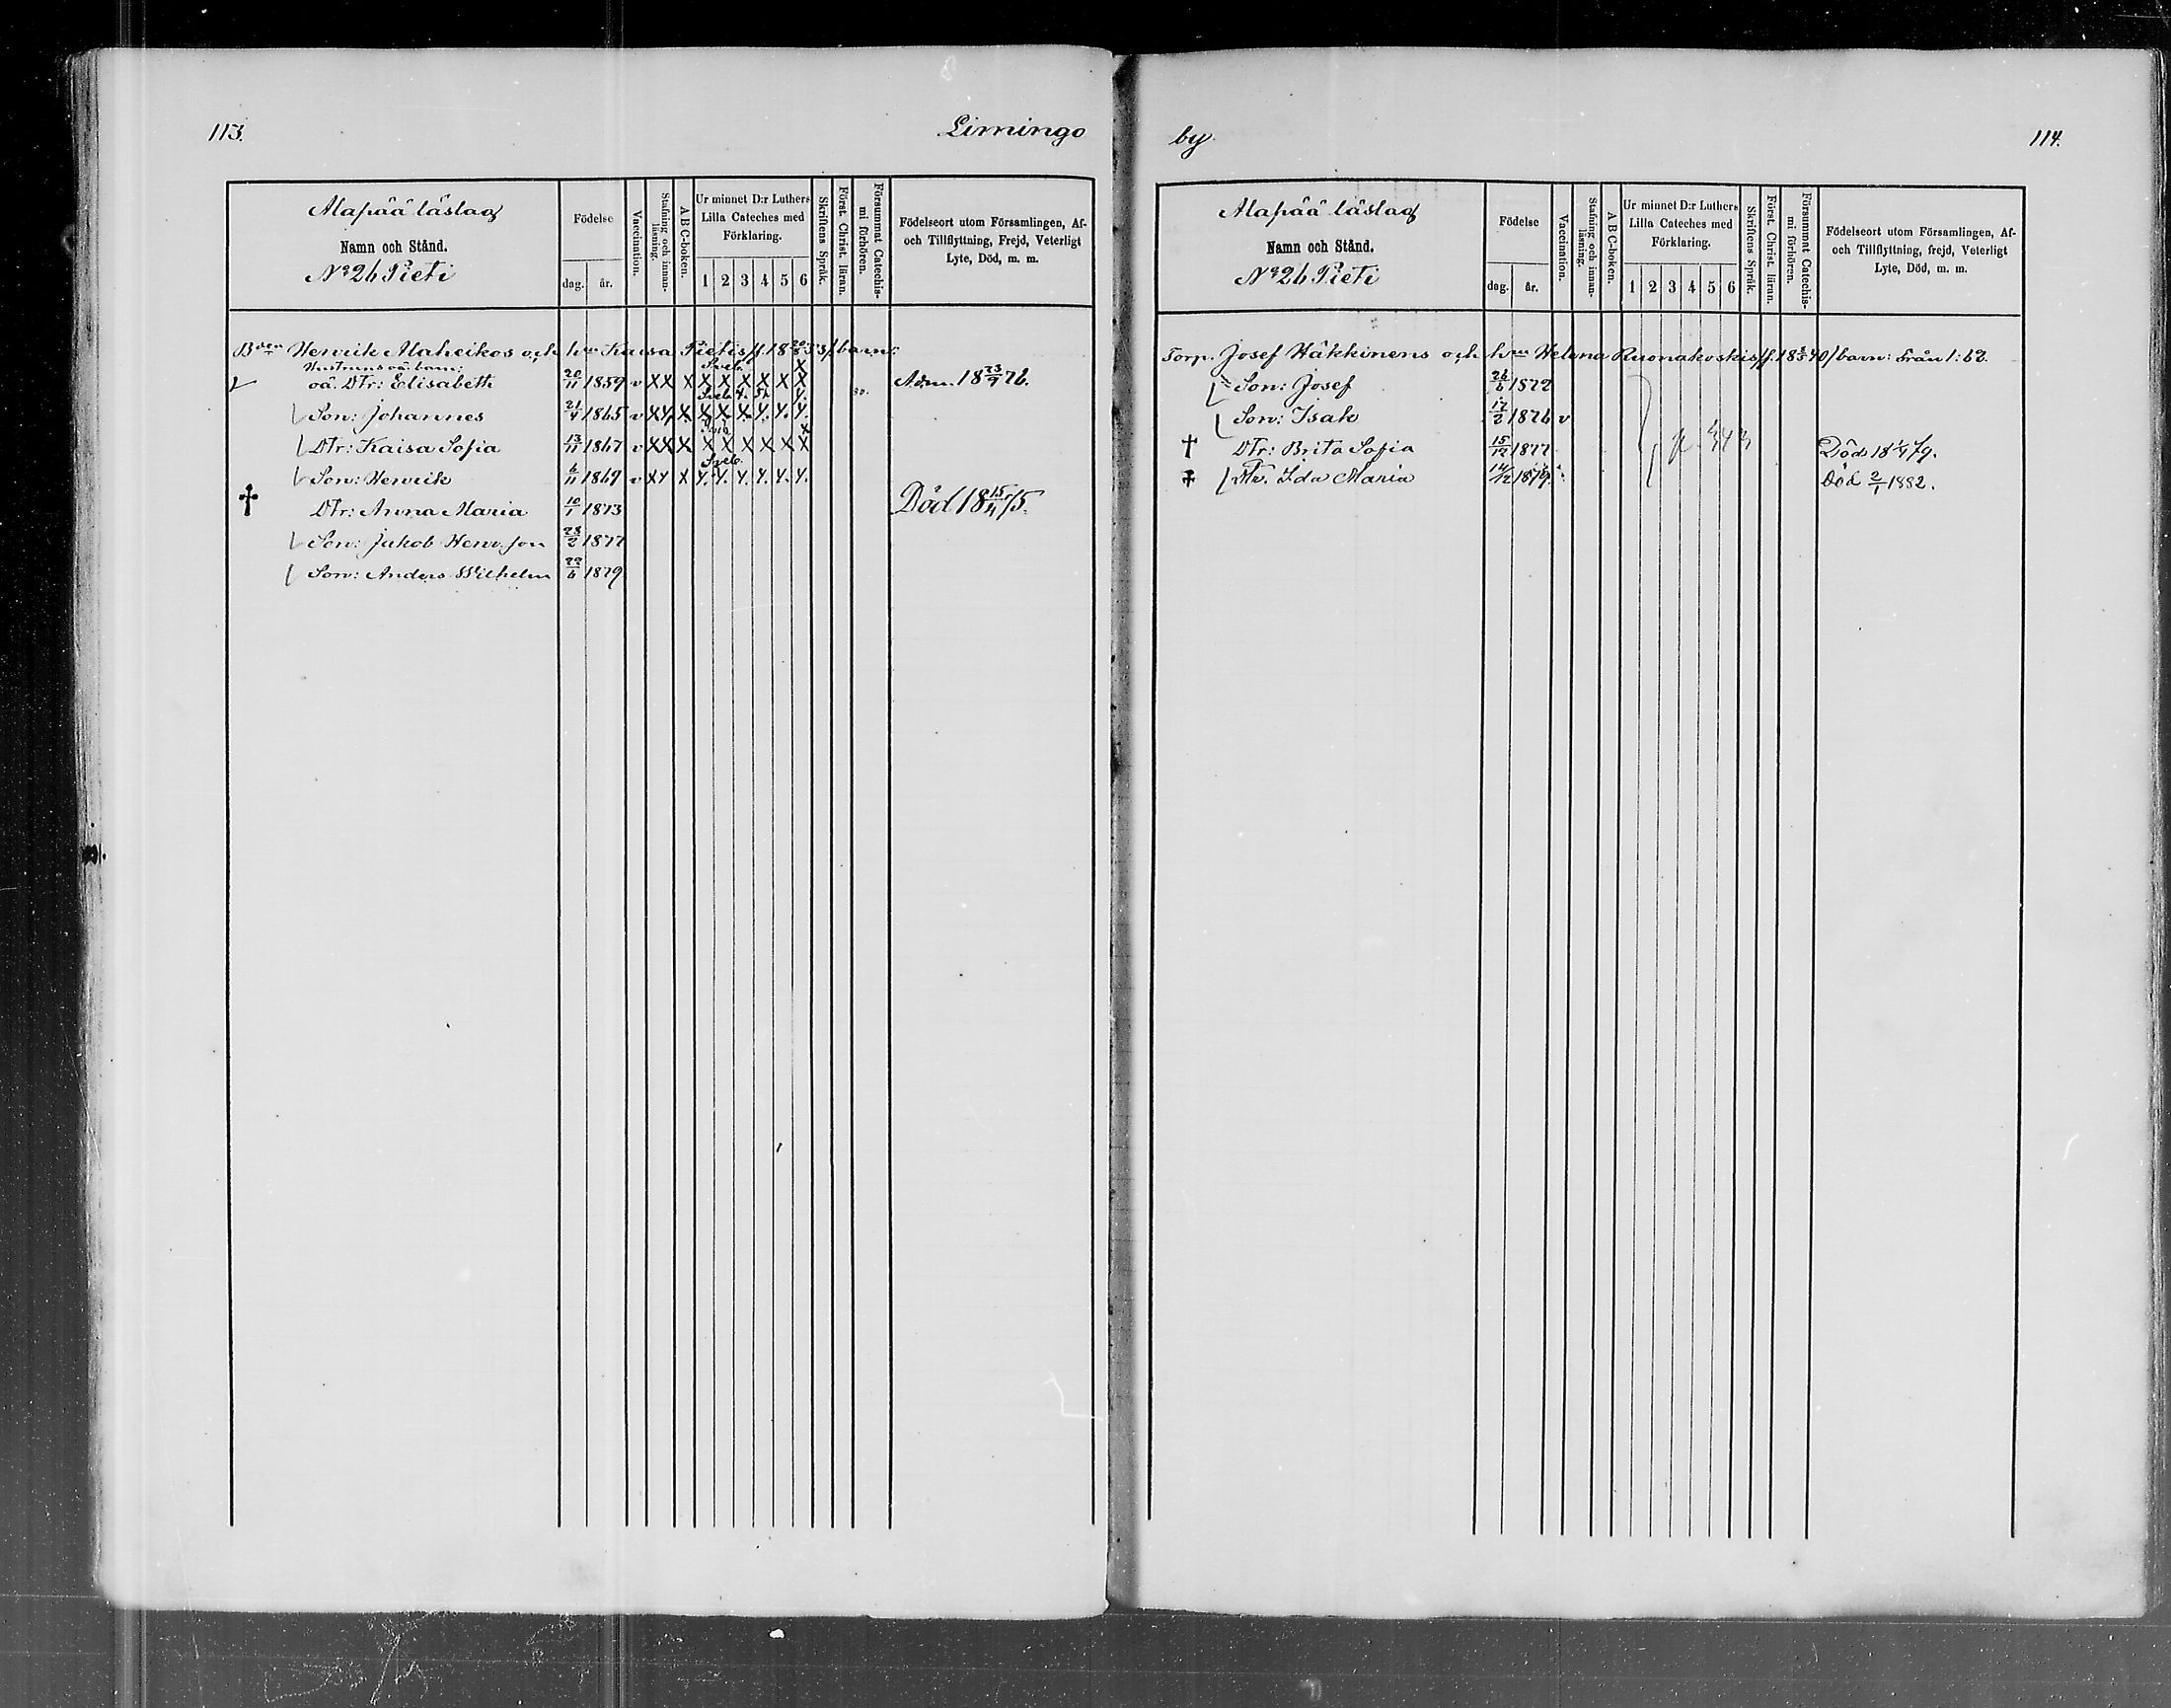 113.
Limingo
Alapää läslag
Namn och Stånd.
No 26 Pieti
Födelse
dag. år.
Vaccination.
Stafning och innan-
läsning.
A B C-boken.
Ur minnet D:r Luthers
Lilla Cateches med
Förklaring.
1 2 3 4 5 6
Skriftens Språk.
Först. Christ. läran.
Försummat Catechis-
mi förhören.
Födelseort utom Församlingen, Af-
och Tillflyttning, Frejd, Veterligt
Lyte, Död, m. m.
Bden Henrik Maheikos och hu Kaisa Pietis barn:
Hustruns oä. barn:
oä. Dtr: Elisabeth 20/11 1859 v XX X X X X X X X Adm. 18 23/9 76.
Son: Johannes 21/4 1865 v
Dtr: Kaisa Sofia 13/11 1867 v XX X X X X X X X
Son: Henrik 6/11 1869 v
† Dtr: Anna Maria 10/1 1873 Död 18 15/4 75.
Son: Jakob 28/2 1877
Son: Anders Wilhelm 22/6 1879
by
114.
Alapää läslag
Namn och Stånd.
No 26 Pieti
Födelse
dag. år.
Vaccination.
Stafning och innan-
läsning.
A B C-boken.
Ur minnet D:r Luthers
Lilla Cateches med
Förklaring.
1 2 3 4 5 6
Skriftens Språk.
Först. Christ. läran.
Försummat Catechis-
mi förhören.
Födelseort utom Församlingen, Af-
och Tillflyttning, frejd, Veterligt
Lyte, Död, m. m.
Torp. Josef Häkkinens och hun Helena Ruonakoskis barn: Från 1:62.
Son: Josef 26/6 1872
Son: Isak 17/2 1876 v
† Dtr: Brita Sofia 15/12 1877 Död 18 1/4 79.
‡ Dtr. Ida Maria 14/12 1879. Död 2/1 1882.